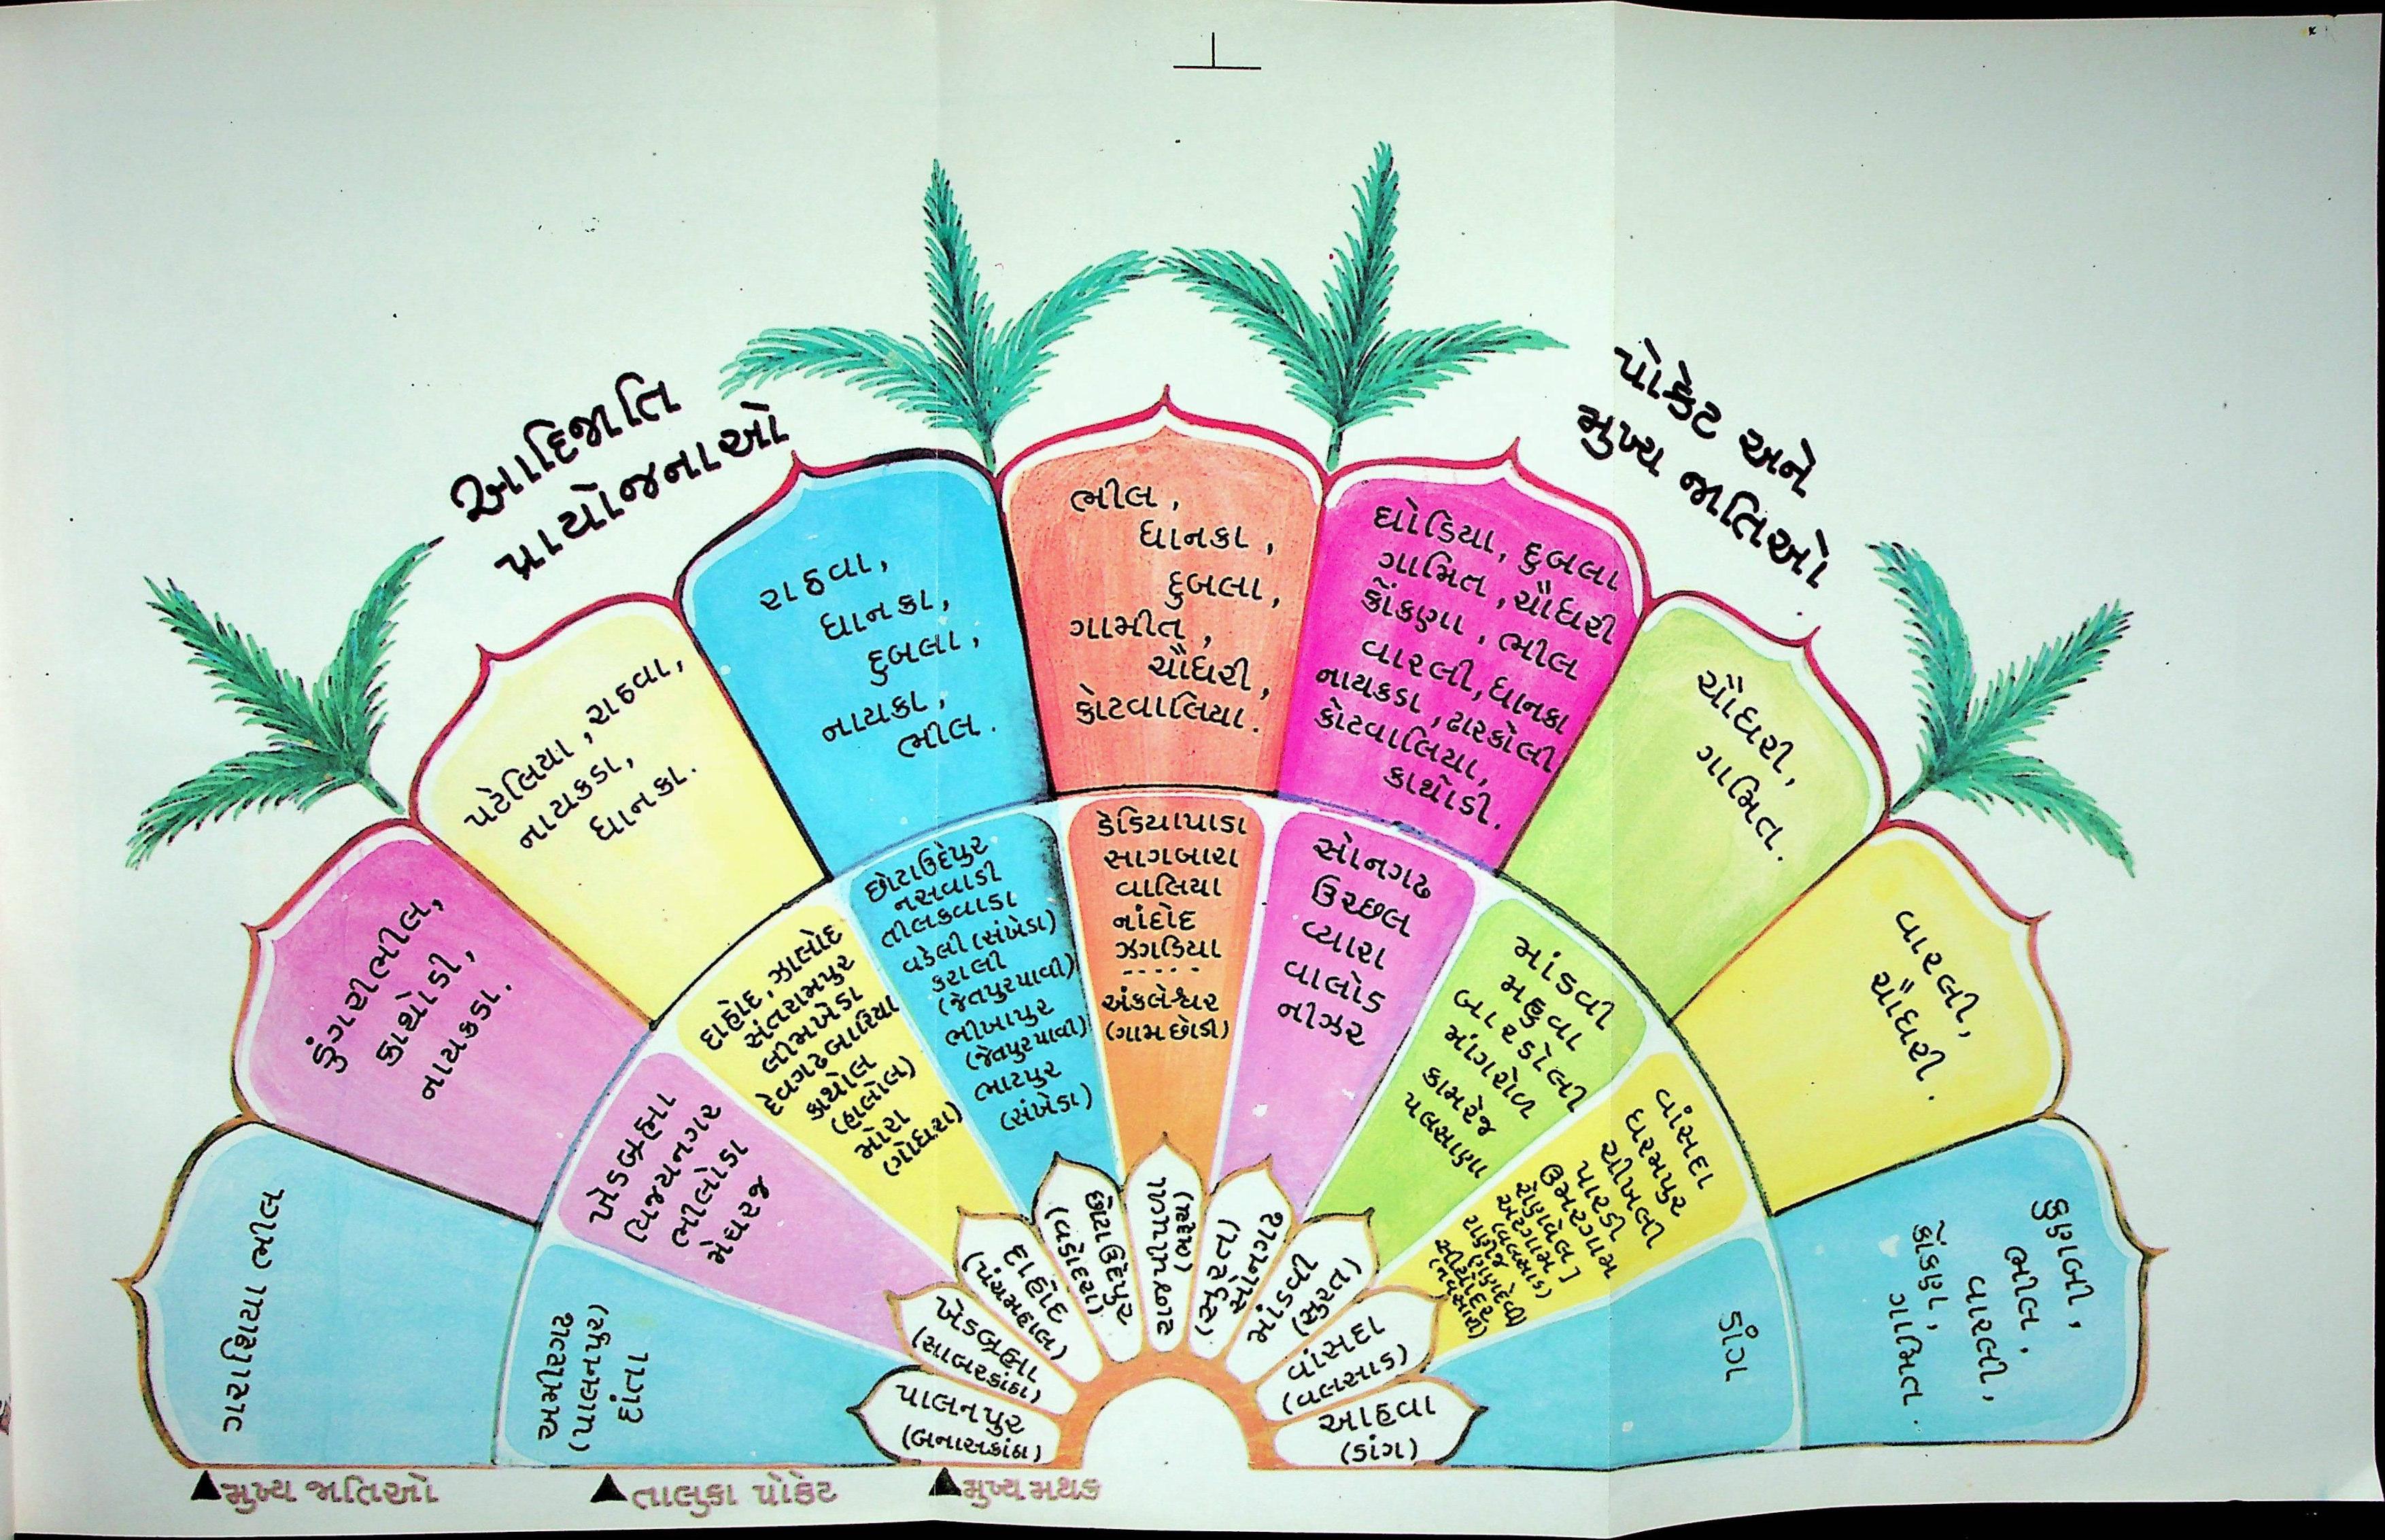 આદિજાતિ
પ્રાયોજનાઓ
પોકેટ અને
મુખ્ય જાતિઓ
ભીલ ગરાશિયા
ડુંગરીભીલ,
કાથોડી,
નાયકડા.
પટેલિયા, રાઠવા,
નાયકડા,
ધાનકા.
રાઠવા,
ધાનકા,
દુબલા,
નાયકા,
ભીલ.
ભીલ,
ધાનકા,
દુબલા,
ગામીત,
ચૌધરી,
કોટવાલિયા.
ધોડિયા, દુબલા
ગામિત, ચૌધરી
કોંકણા, ભીલ
વારલી, ધાનકા
નાયકડા, ઢારકોલી
કોટવાલિયા,
કાથોડી.
ચૌધરી,
ગામિત.
વારલી,
ચૌધરી.
કુણબી,
ભીલ,
વારલી,
કોંકણ,
ગામિત.
દાંતા
(પાલનપુર)
અમીરગઢ
ખેડબ્રહ્મા
વિજયનગર
ભીલોડા
મેઘરજ
દાહોદ, ઝાલોદ
સંતરામપુર
લીમખેડા
દેવગઢ બારિયા
કાથોલ
(હાલોલ)
મોરા
(ગોધરા)
છોટાઉદેપુર
નસવાડી
તીલકવાડા
વડેલી (સંખેડા)
કરાલી
(જેતપુરપાવી)
ભીખાપુર
(જેતપુરપાવી)
ભાટપુર
(સંખેડા)
ડેડિયાપાડા
સાગબારા
વાલિયા
નાંદોદ
ઝગડિયા
-----
અંકલેશ્વર
(ગામછોડી)
સોનગઢ
ઉચ્છલ
વ્યારા
વાલોડ
નીઝર
માંડવી
મહુવા
બારડોલી
માંગરોળ
કામરેજ
પલસાણા
વાંસદા
ધરમપુર
ચીખલી
પારડી
ઉમરગામ
રોણવેલ ]
અટગામ ]
(વલસાડ)
(નવસારી)
ડાંગ
પાલનપુર
(બનાસકાંઠા)
ખેડબ્રહ્મા
(સાબરકાંઠા)
દાહોદ
(પંચમહાલ)
છોટાઉદેપુર
(વડોદરા)
રાજપીપળા
(ભરૂચ)
સોનગઢ
(સુરત)
માંડવી
(સુરત)
વાંસદા
(વલસાડ)
આહવા
(ડાંગ)
▲મુખ્ય જાતિઓ
▲તાલુકા પોકેટ
▲મુખ્ય મથક